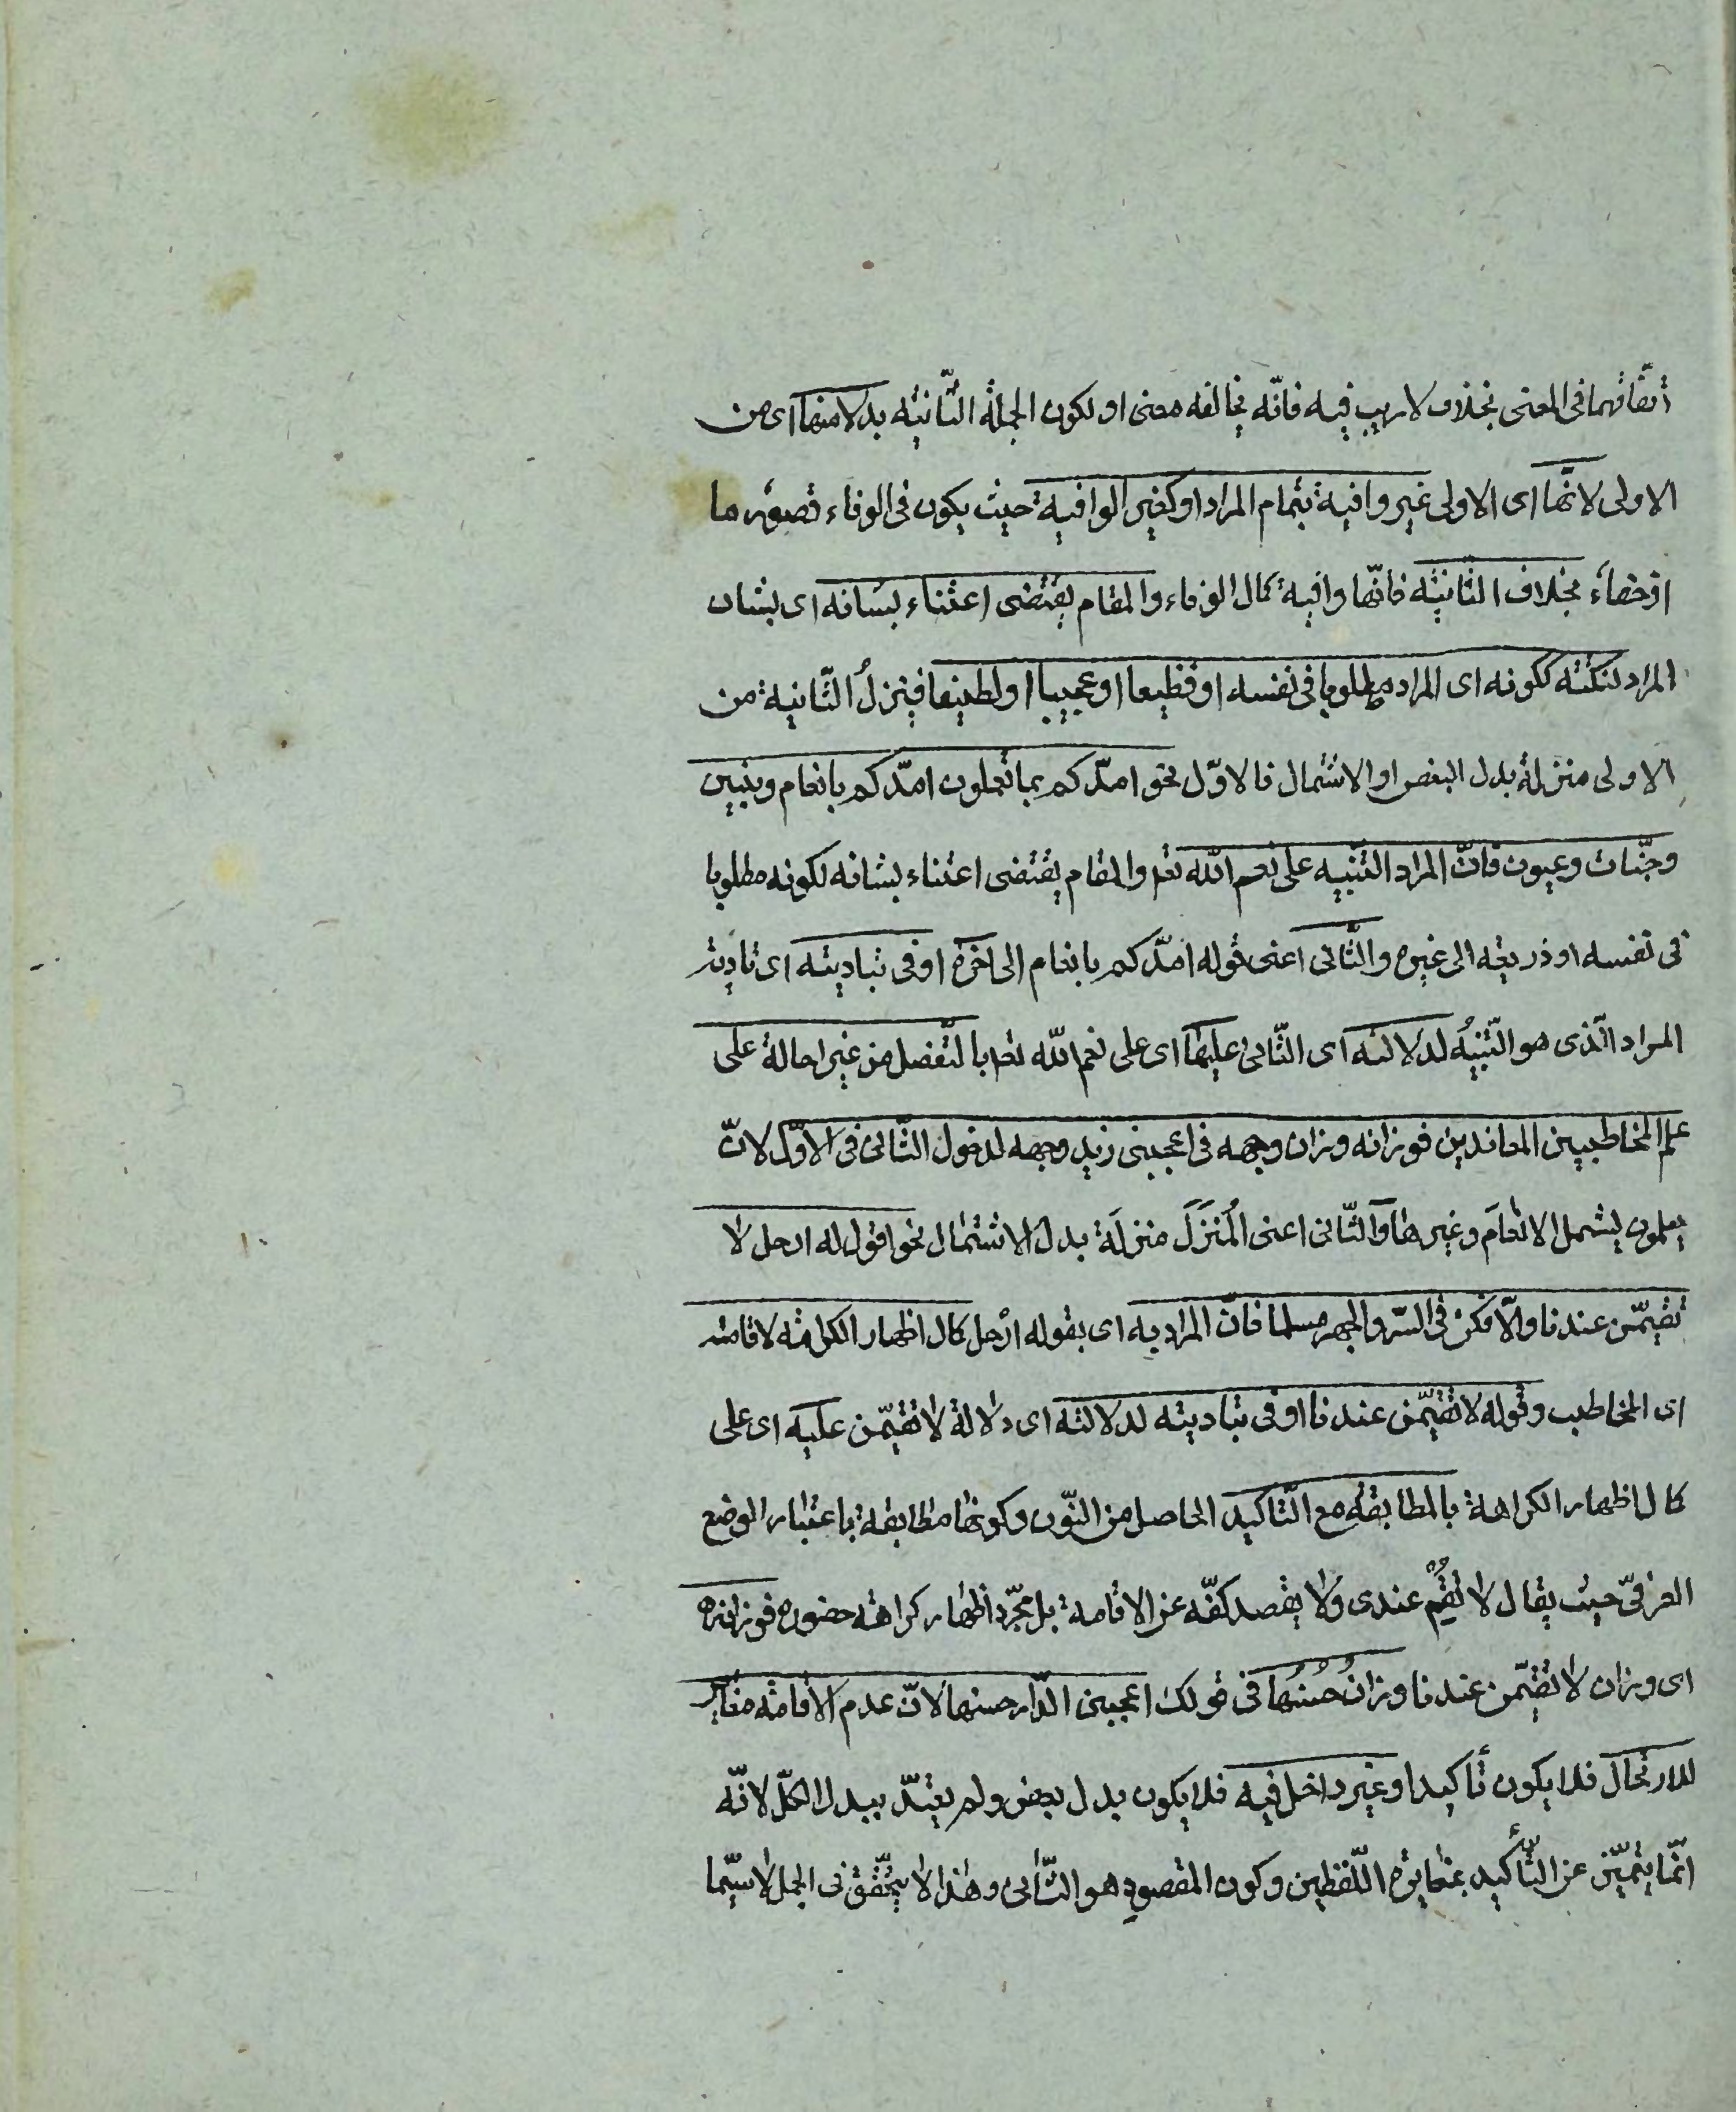 اتّفاقهما فى المعنى بخلاف لا ريب فيه فانّه يخالفه معنى او لكون الجملة الثّانية بدلا منها اى من
الاولى لانّها اى الاولى غير وافية بتمام المراد او كغير الوافية حيث يكون فى الوفاء قصور ما
او خفاء بخلاف الثّانية فانّها وافية كمال الوفاء والمقام يقتضى اعتناء بشانه اى بشان
المراد لنكتة ككونه اى المراد مطلوبا فى نفسه او فظيعا او عجيبا او لطيفا فينزلُ الثّانية من
الاولى منزلة بدل البعض او الاشتمال فالاوّل نحو امدّكم بما تعلمون امدّكم بانعام وبنين
وجنّات وعيون فانّ المراد التّنبيه على نعم اللّه تع والمقام يقتضى اعتناء بشانه لكونه مطلوبا
فى نفسه او ذريعة الى غيره والثّانى اعنى قوله امدّكم بانعام الى آخره اوفى بتاديته اى تادية
المراد الّذى هو التّنبيه لدلالته اى الثّانى عليها اى على نعم اللّه تع بالتّفصل من غير احالة على
علم المخاطبين المعاندين فوزانه وزان وجهه فى اعجبنى زيد وجهه لدخول الثّانى فى الاوّل لانّ
يعلمون يشمل الانعامَ وغيرها والثّانى اعنى المُنَزَّلَ منزلَة بدل الاشتمال نحو اقول له ارحل لا
تقيمّن عندنا والّا فكن فى السّرّ والجهر مسلما فانّ المراد به اى بقوله ارْحل كمال اظهار الكراهة لاقامته
اى المخاطب وقوله لا تقيمّن عندنا اوفى بتاديته لدلالته اى دلالة لا تقيمّن عليه اى على
كمال اظهار الكراهة بالمطابقة مع التّاكيد الحاصل من النّون وكونها مطابقة باعتبار الوضع
العرفىّ حيث يقال لا تُقِمْ عندى ولا يقصد كفّه عن الاقامة بل مجرّد اظهار كراهة حضوره فوزانه
اى وزان لا تقيمّن عندنا وزانُ حُسْنُها فى قولك اعجبنى الدّار حسنها لانّ عدم الاقامة مغاير
للارتحال فلا يكون تأكيدا وغير داخل فيه فلا يكون بدل بعض ولم يعتدّ ببدل الكلّ لانّه
انّما يتميّز عن التّأكيد بمغايرة اللّفظين وكون المقصود هو الثّانى وهذا لا يتحقّق فى الجمل لا سيّما